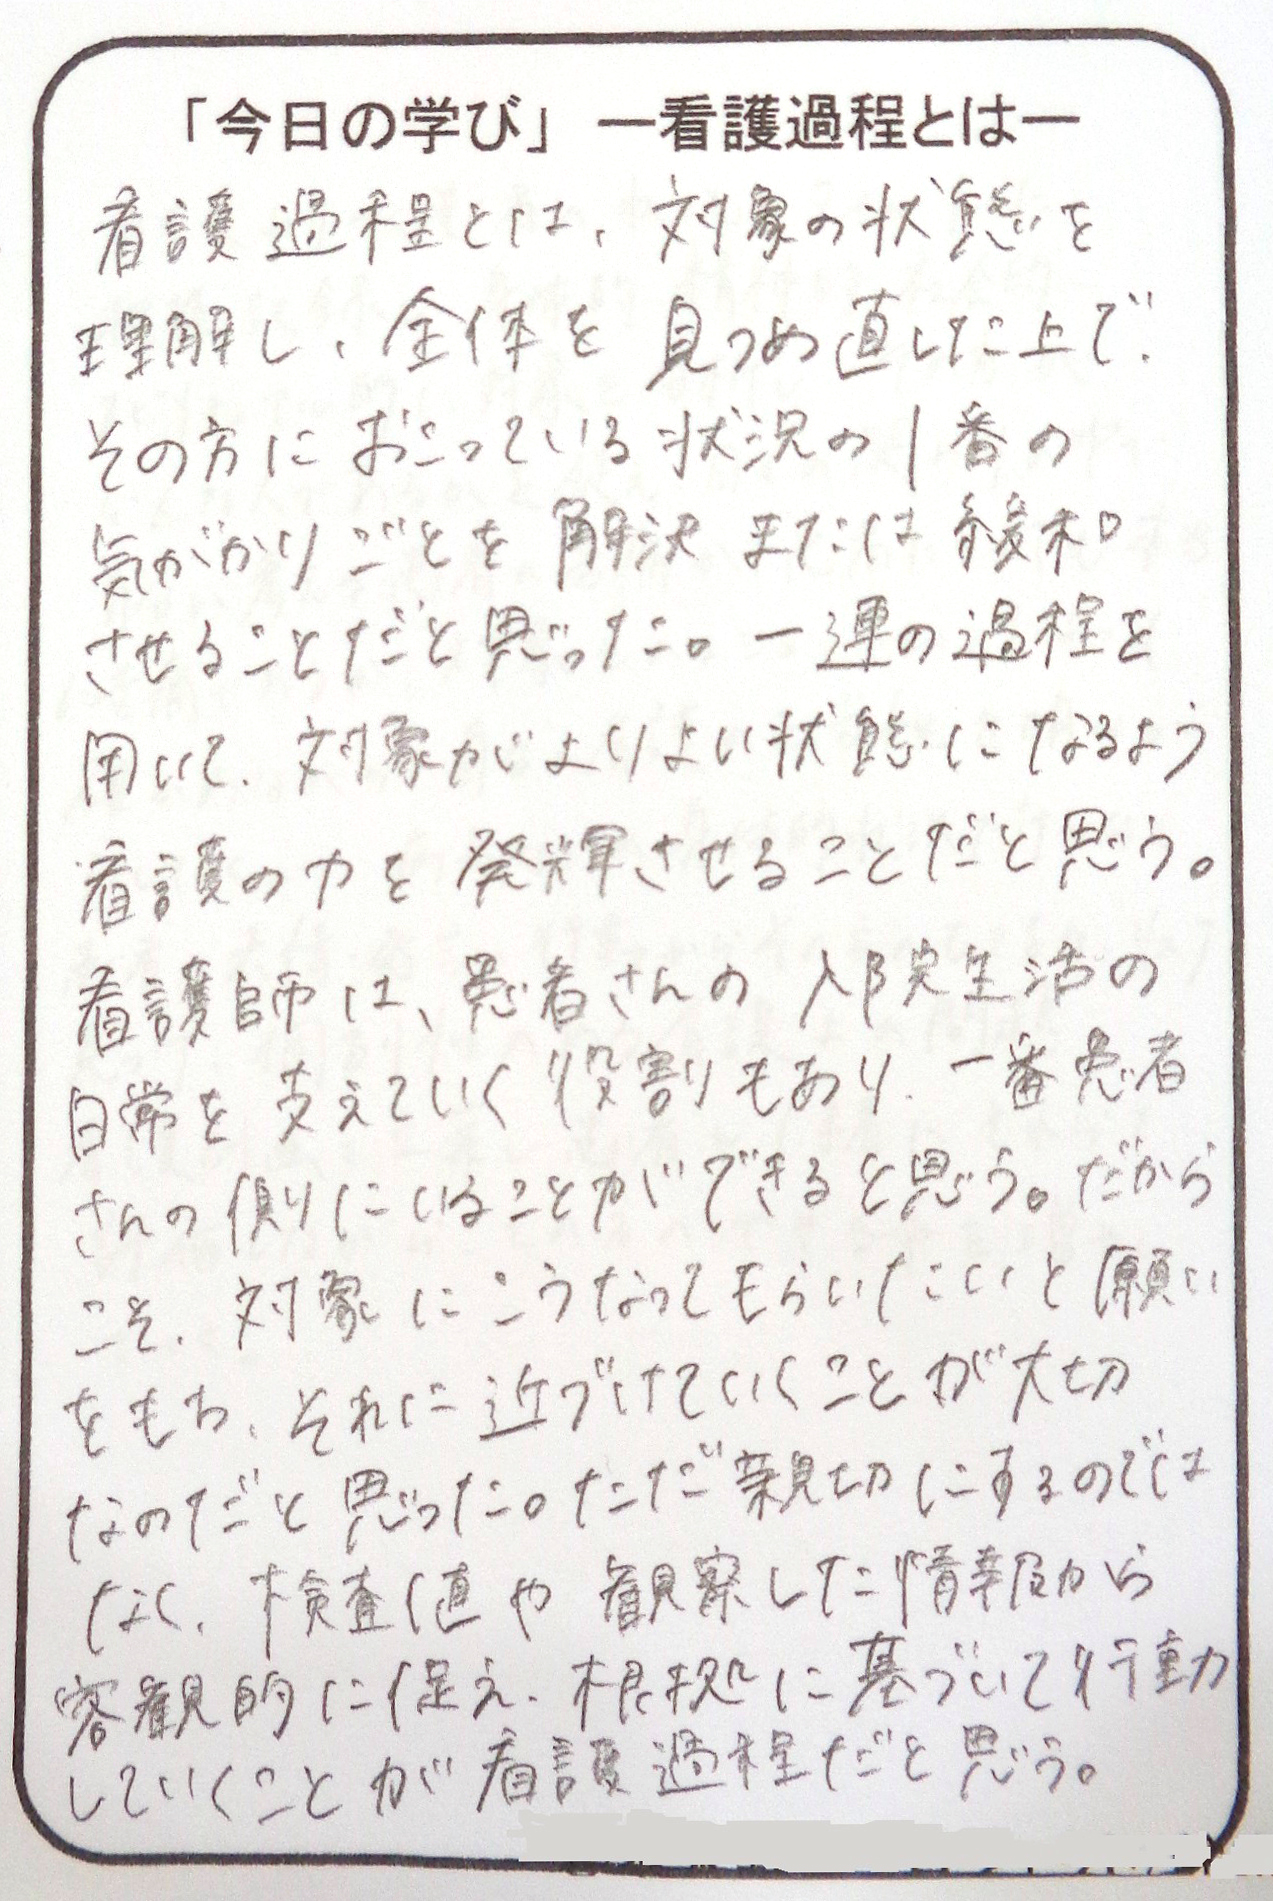 「今日の学び」 ー看護過程とはー
看護過程とは、対象の状態を
理解し、全体を見つめ直した上で、
その方におこっている状況の1番の
気がかりごとを解決または緩和
させることだと思った。一連の過程を
用いて、対象がよりよい状態になるよう
看護の力を発揮させることだと思う。
看護師は、患者さんの入院生活の
日常を支えていく役割りもあり、一番患者
さんの側にいることができると思う。だから
こそ、対象にこうなってもらいたいと願い
をもち、それに近づけていくことが大切
なのだと思った。ただ親切にするのでは
なく、検査値や観察した情報から
客観的に促え、根拠に基づいて行動
していくことが看護過程だと思う。